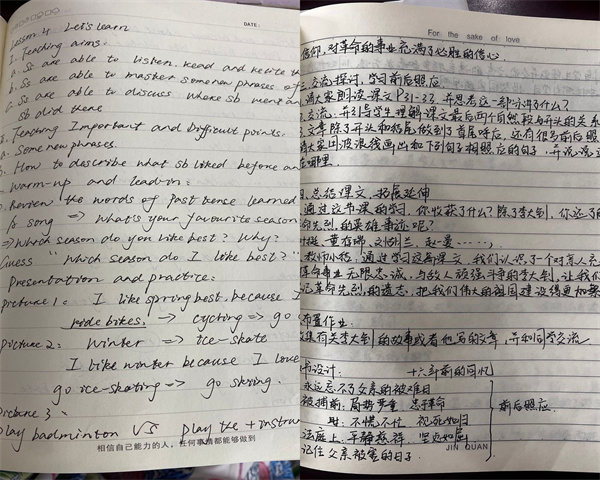 DATE:
Lesson 4 Let's learn
I. Teaching aims:
a. Ss are able to listen. read and recite th
b. Ss are able to master some new phrases. of
c. Ss are able to discuss where sb went an
sb did there
II. Teaching Important and Difficult points.
a. Some new phrases.
b. How to describe what sb liked before an
Warm-up and lead-in:
Review the words of past tense learned
song => What's your favourite season
=> Which season do you like best? Why?
Guess "Which season do I like best?"
Presentation and practice:
picture 1: I like spring best, because I
ride bikes. -> cycling => go
picture 2: Winter => ice-skate
I like winter because I love
go ice-skating => go skiing.
Picture 3:
play badminton VS play the + instrum
相信自己能力的人，任何事情都能够做到
For the sake of love
信仰，对革命的事业充满了必胜的信心
三、交流探讨，学习前后照应
请大家朗读课文P31-33，并思考这一部分讲了什么？
交流，并引导学生理解课文最后两个自然段与开头的关系
文章除了开头和结尾做到了首尾呼应，还有很多前后照
请大家用波浪线画出和下列句子相照应的句子，并说说这
在哪里
四、总结课文，拓展延伸
通过这节课的学习，你收获了什么？除了李大钊，你还了
命先烈的英雄事迹呢？
董存瑞 刘胡兰 赵一曼……
教师小结：通过学习这篇课文，我们认识了一个对亲人充
革命事业无限忠诚，与敌人顽强斗争的李大钊，让我们
记革命先烈的遗志，把我们伟大的祖国建设得更加繁
布置作业
收集有关李大钊的故事或者他写的文章，并和同学交流
书设计： 十六年前的回忆
永远忘不了父亲的被难日
被捕前：局势严重 忠于革命
时：不慌不忙 视死如归 前后照应
法庭上：平静慈祥 坚贞如
记住父亲被害的日子
JIN QUAN